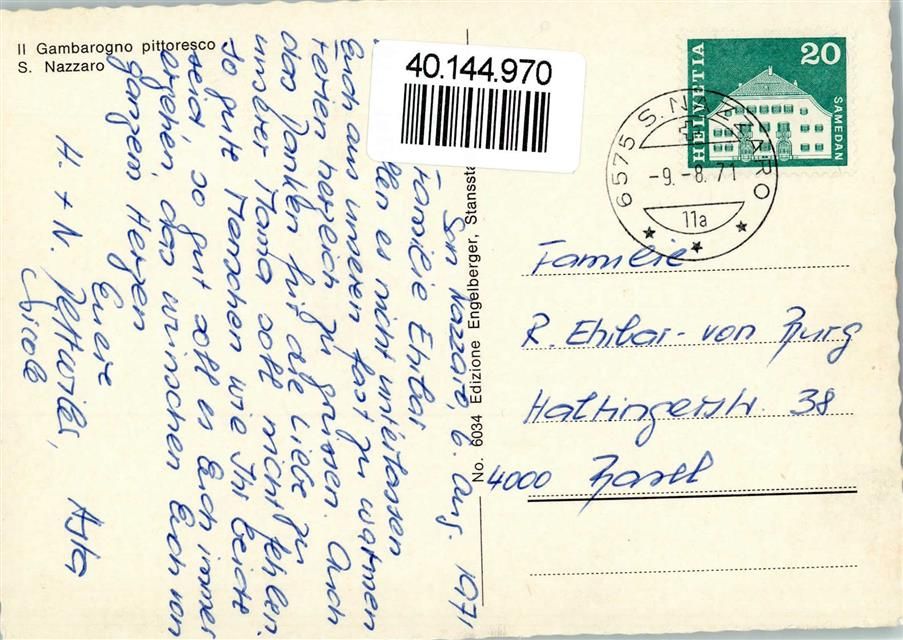 Il Gambarogno pittoresco
S. Nazzaro
40.144.970
HELVETIA
20
SAMEDAN
6575 S. NAZZARO
-9.-8.71
11a
No. 6034 Edizione Engelberger, Stansst
San Nazzaro, 6. Aug. 1971
Familie Ehrbar
es nicht unterlassen
Euch aus unseren fast zu warmen
Ferien herzlich zu grüssen. Auch
das Danken für die Liebe zu
unserer Mama soll nicht fehlen.
So gute Menschen wie Ihr beide
seid, so gut soll es Euch immer
ergehen, das wünschen Euch von
ganzem Herzen
Eure
H. + N. Asta
Nicole
Familie
R. Ehrbar-von Burg
Haltingerstr. 38
4000 Basel